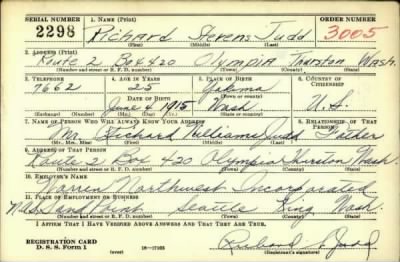 SERIAL NUMBER 1. NAME (Print) ORDER NUMBER
2298 Richard Stevens Judd 3005
(First) (Middle) (Last)
2. ADDRESS (Print)
Route 2 Box 420 Olympia Thurston Wash.
(Number and street or R. F. D. number) (Town) (County) (State)
3. TELEPHONE 4. AGE IN YEARS 5. PLACE OF BIRTH 6. COUNTRY OF CITIZENSHIP
7662 25 Yakima
DATE OF BIRTH (Town or county)
June 4 1915 Wash U.S.
(Mo.) (Day) (Yr.) (State or country)
7. NAME OF PERSON WHO WILL ALWAYS KNOW YOUR ADDRESS 8. RELATIONSHIP OF THAT PERSON
Mr. Richard Williams Judd Father
(Mr., Mrs., Miss) (First) (Middle) (Last)
9. ADDRESS OF THAT PERSON
Route 2 Box 420 Olympia Thurston Wash.
(Number and street or R. F. D. number) (Town) (County) (State)
10. EMPLOYER'S NAME
Warren Northwest Incorporated
11. PLACE OF EMPLOYMENT OR BUSINESS
Sand Point Seattle King Wash.
(Number and street or R. F. D. number) (Town) (County) (State)
I AFFIRM THAT I HAVE VERIFIED ABOVE ANSWERS AND THAT THEY ARE TRUE.
REGISTRATION CARD
D. S. S. Form 1 (over) Richard S. Judd
(Registrant's signature)